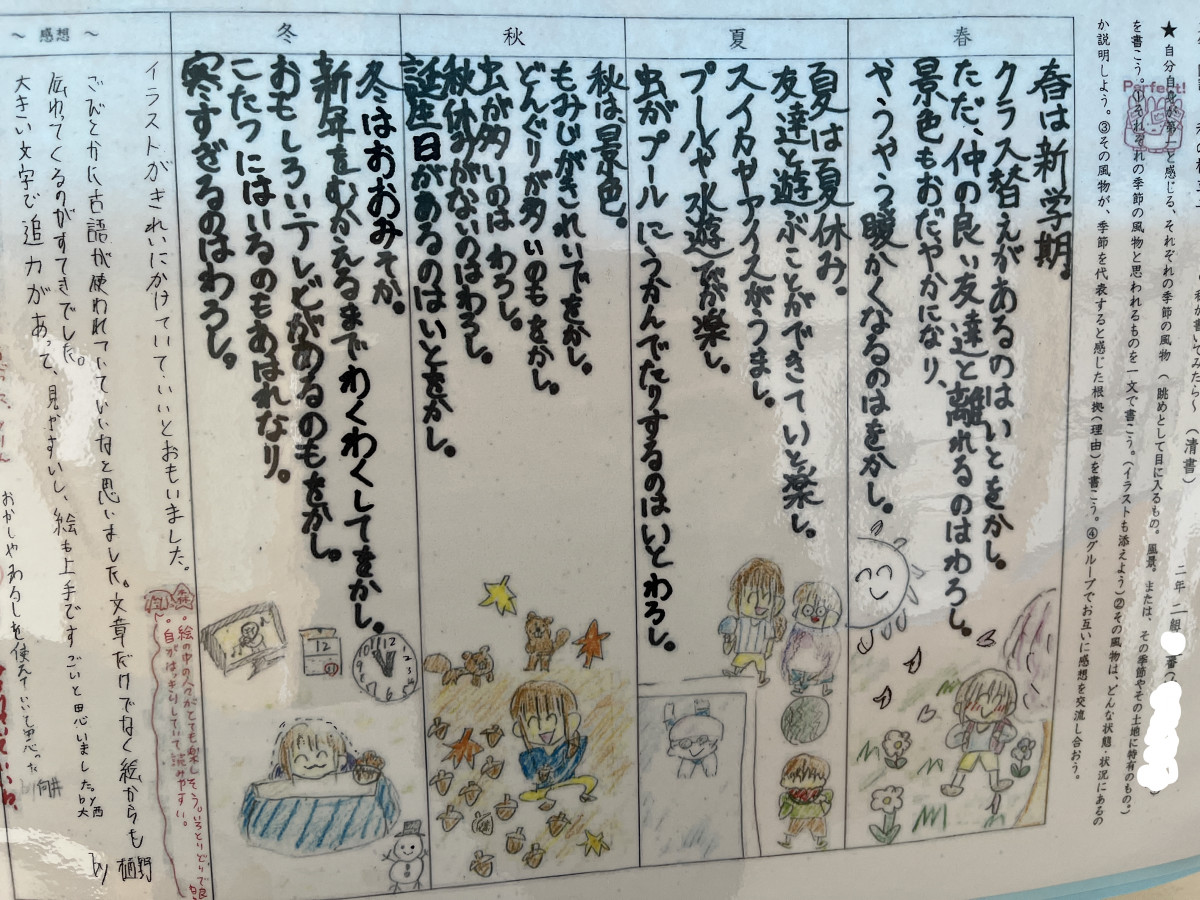 私が書いてみたら～ （清書）
★自分自身が第一と感じる、それぞれの季節の風物（眺めとして目に入るもの。風景。または、その季節やその土地に特有のもの。）
を書こう。①それぞれの季節の風物と思われるものを一文で書こう。（イラストも添えよう）②その風物は、どんな状態・状況にあるの
か説明しよう。③その風物が、季節を代表すると感じた根拠（理由）を書こう。④グループでお互いに感想を交流し合おう。
二年 二組
Perfect!
春
春は新学期。
クラス替えがあるのはいとをかし。
ただ、仲の良い友達と離れるのはわろし。
景色もおだやかになり、
やうやう暖かくなるのはをかし。
夏
夏は夏休み。
友達と遊ぶことができていと楽し。
スイカやアイスがうまし。
プールや水遊びが楽し。
虫がプールにうかんでたりするのはいとわろし。
秋
秋は、景色。
もみじがきれいでをかし。
どんぐりが多いのもをかし。
虫が多いのは わろし。
秋休みがないのはわろし。
誕生日があるのはいとをかし。
冬
冬はおおみそか。
新年をむかえるまでわくわくしてをかし。
おもしろいテレビがあるのもをかし。
こたつにはいるのもあはれなり。
寒すぎるのはわろし。
12
12
～ 感想 ～
イラストがきれいにかけていて、いいとおもいました。
。絵の中の人がとても楽しそう。いろとりどりで良
。字がはっきりしていて、読みやすい。
ところどころに古語が使われていていいなと思いました。文章だけでなく絵からも
伝わってくるのがすてきでした。
大きい文字で迫力があって、見やすいし、絵も上手ですごいと思いました。
おかしやわろしを使えていて